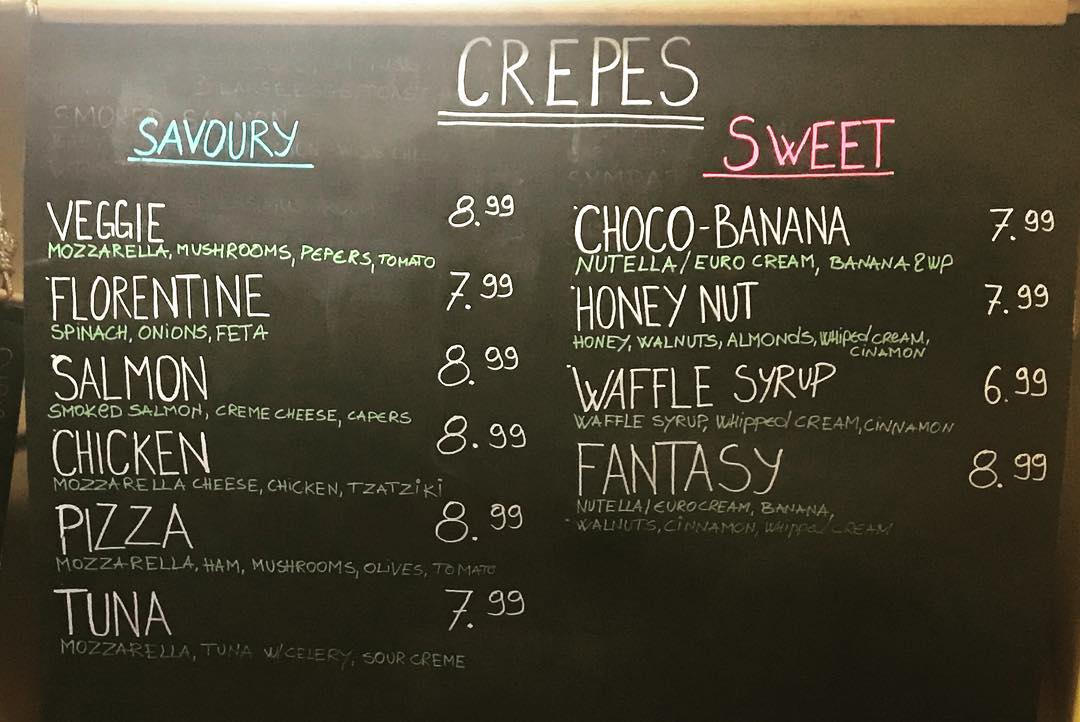 CREPES
SAVOURY
VEGGIE 8.99
MOZZARELLA, MUSHROOMS, PEPERS, TOMATO
FLORENTINE 7.99
SPINACH, ONIONS, FETA
SALMON 8.99
SMOKED SALMON, CREME CHEESE, CAPERS
CHICKEN 8.99
MOZZARELLA CHEESE, CHICKEN, TZATZIKI
PIZZA 8.99
MOZZARELLA, HAM, MUSHROOMS, OLIVES, TOMATO
TUNA 7.99
MOZZARELLA, TUNA W/CELERY, SOUR CREME
SWEET
CHOCO-BANANA 7.99
NUTELLA/EURO CREAM, BANANA & WP
HONEY NUT 7.99
HONEY, WALNUTS, ALMONDS, WHIPED CREAM,
CINAMON
WAFFLE SYRUP 6.99
WAFFLE SYRUP, WHIPPED CREAM, CINNAMON
FANTASY 8.99
NUTELLA/EUROCREAM, BANANA,
WALNUTS, CINNAMON, WHIPPED CREAM